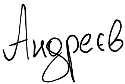 Андреев